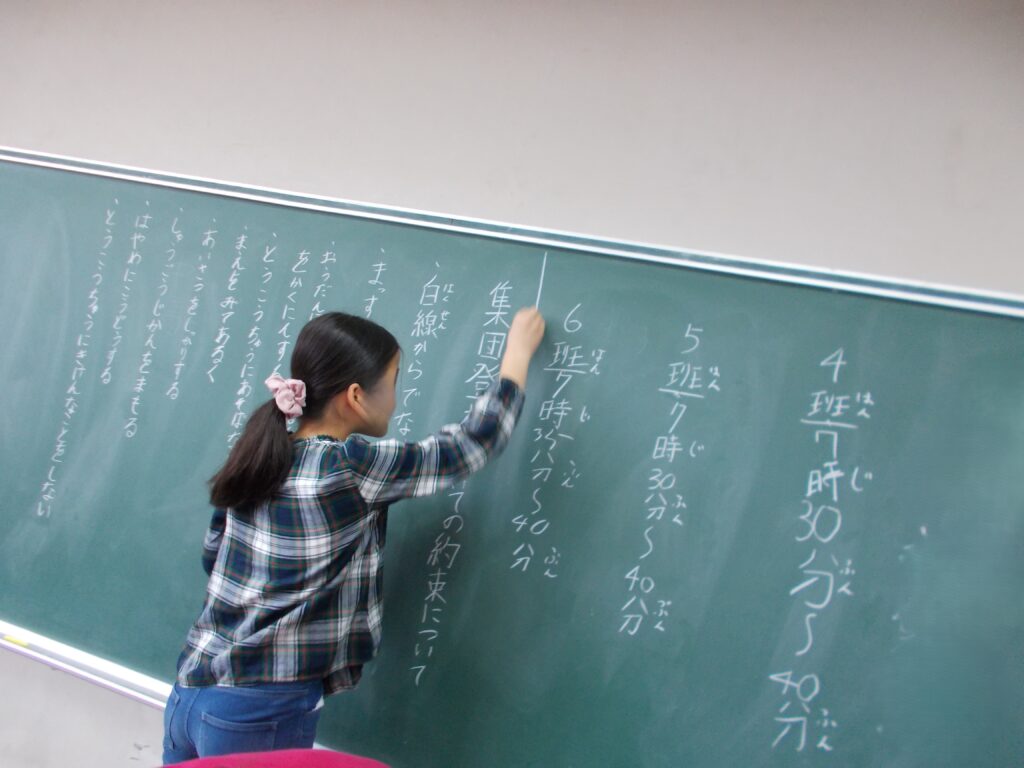 4班7時30分～40分
はん じ ふん ぷん
5班7時30分～40分
はん じ ふん ぷん
6班7時 分～40分
はん じ ふん ぷん
集団登 ての約束について
・白線からでな
はくせん
・まっす
・おうだん
をかくにんす
・とうこうちゅうにあ
・まえをみてあるく
・あいさつをしっかりする
・しゅうごうじかんをまもる
・はやめにこうどうする
・とうこうちゅうにきけんなことをしない